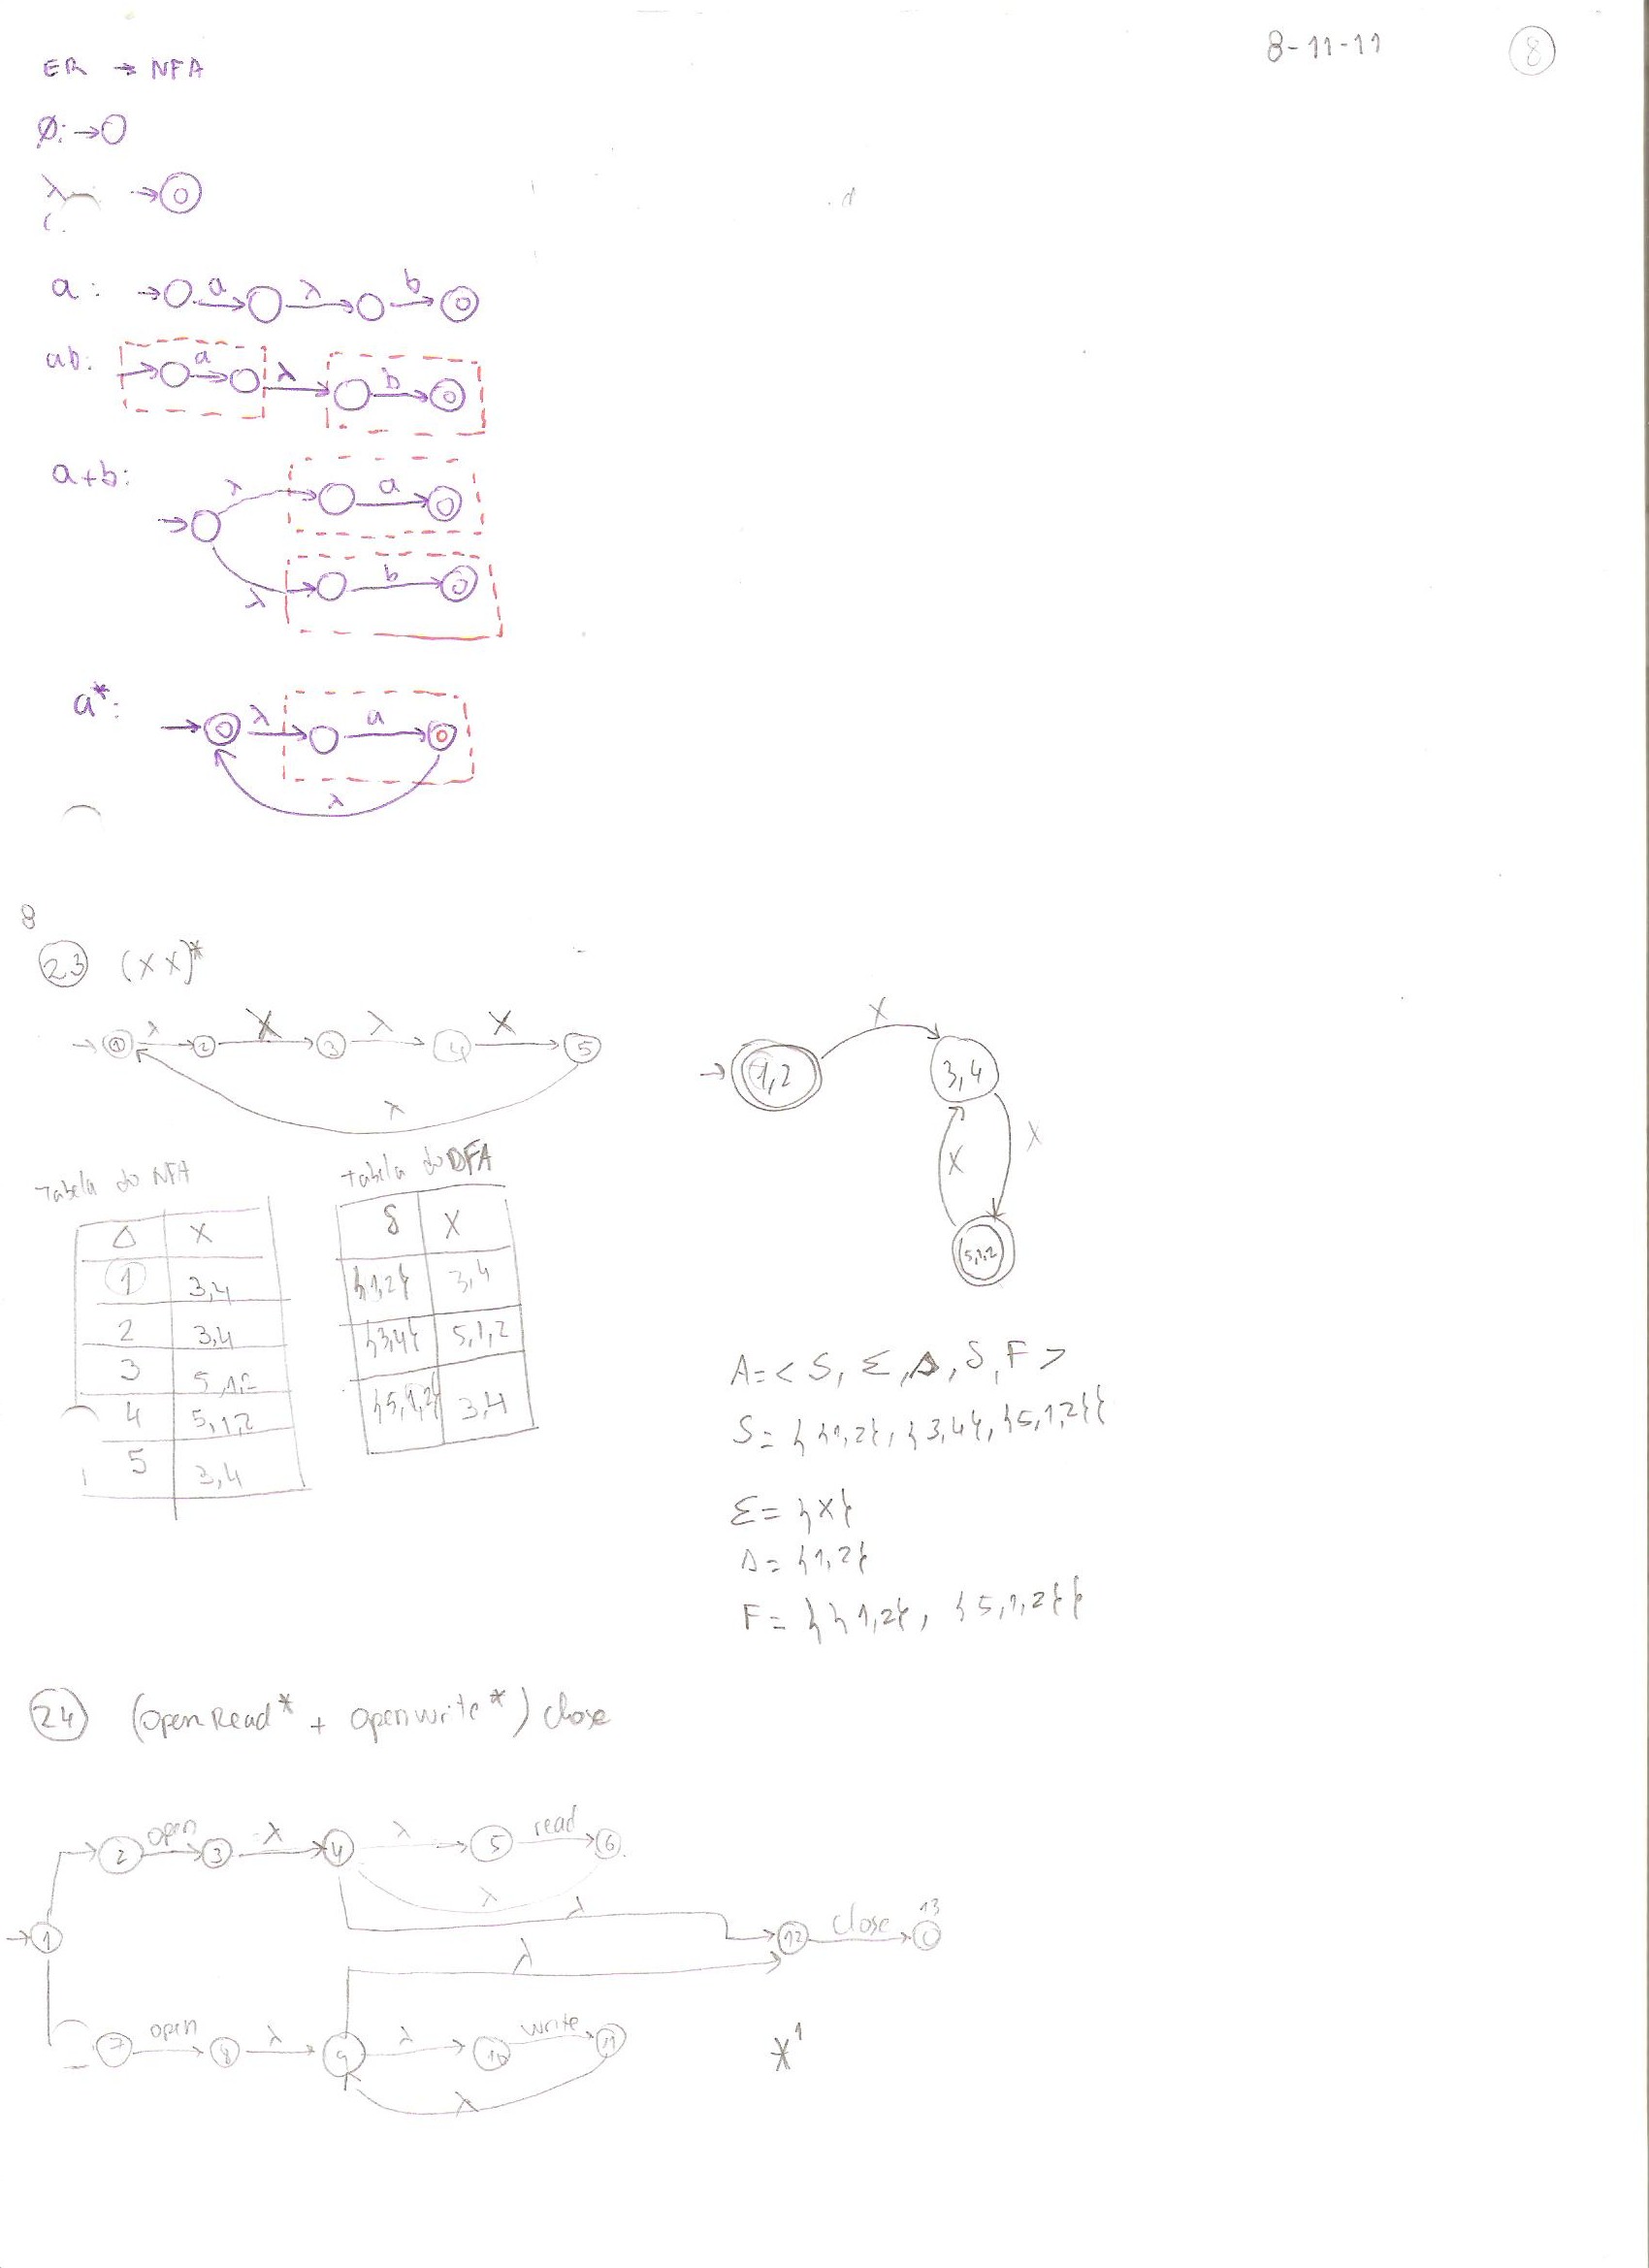 8-11-11 8
ER → NFA
Ø: →
λ
a: a λ b
ab: a λ b
a+b: λ a
λ b
a*: λ a
λ
8
23 (XX)*
1 λ 2 X 3 λ 4 X 5
λ
1,2 X 3,4
X X
5,1,2
Tabela do NFA
Δ X
1 3,4
2 3,4
3 5,1,2
4 5,1,2
5 3,4
Tabela do DFA
δ X
{1,2} 3,4
{3,4} 5,1,2
{5,1,2} 3,4
A=< S, Σ, s, δ, F >
S= { {1,2}, {3,4}, {5,1,2}}
Σ= {X}
s= {1,2}
F= { {1,2}, {5,1,2}}
24 (open Read* + open write*) close
2 open 3 λ 4 λ 5 read 6
λ
λ
1 12 close 13
λ
7 open 8 λ 9 λ 10 write 11
λ
*1